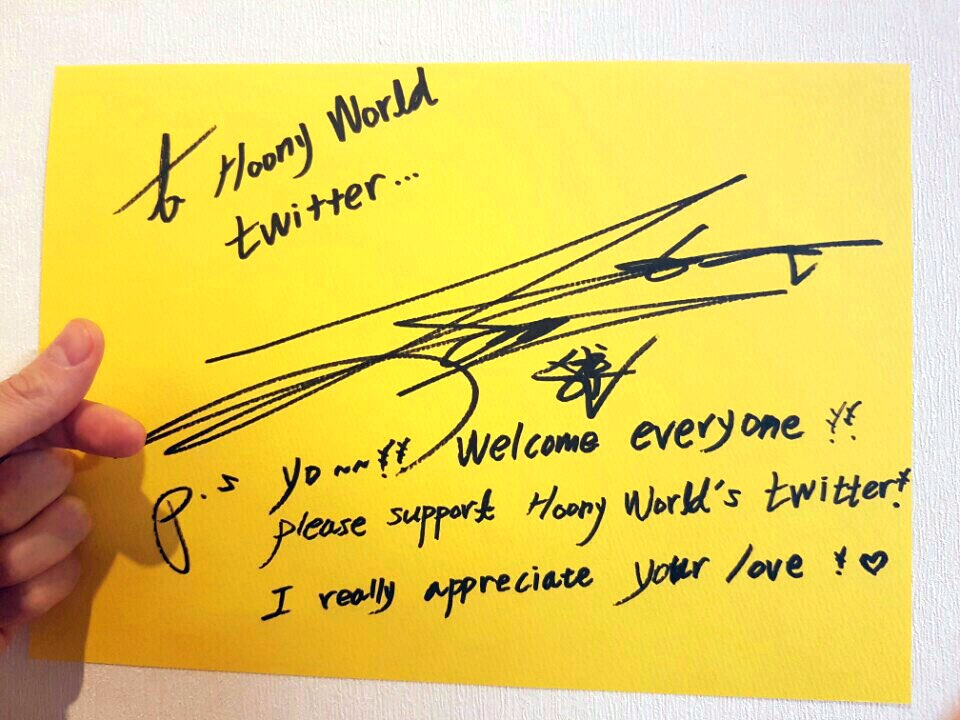 to Hoony World
twitter...
P.s yo~~!! Welcome everyone !!
please support Hoony World's twitter!
I really appreciate your love ! ♡